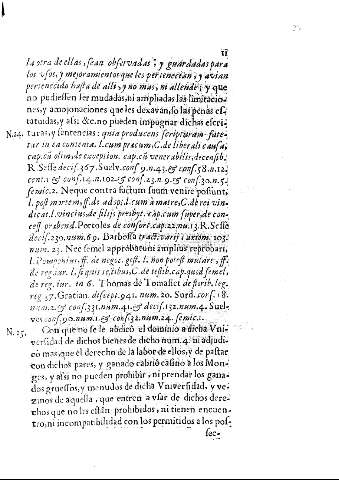 11
la otra de ellas, sean observadas; y guardadas para
los vsos, y mejoramientos que les pertenecian; y avian
pertenecido hasta de alli, y no mas, ni allende; y que
no pudiessen ser mudadas, ni ampliadas las limitacio-
nes, y amojonaciones que les dexavan, so las penas es-
tatuidas, y assi &c. no pueden impugnar dichas escri-
N.24. turas, y sentencias: quia producens scripturam fate-
tur in ea contenta. l. cum precum, C. de liberali causa,
cap. cum olim de exception. cap. cum venerabilis, eod. tit.
R. Sesse decis. 367. Suelv. cons. 9. n. 43. & cons. 58. n. 12.
cent. 1. & cons. 14. n. 102. & cons. 23. n. 9. & cons. 30. n. 5.
semic. 2. Neque contra factum suum venire possunt,
l. post mortem, ff. de adopt. l. cum à matre, C. de rei vin-
dicat. l. vincius, de filijs presbyt. cap. cum super, de con-
cess. præbend. Portoles de consort. cap. 22. nu. 13. R. Sesse
decis. 230. num. 69. Barbosa tract. varij: axiom. 103.
num. 23. Nec semel approbatum amplius reprobari,
l. Pomponius, ff. de negot. gest. l. hoc potest mulier, ff.
de reg. iur. l. si quis testibus, C. de testib. cap. quod semel,
de reg. iur. in 6. Thomas de Tomasset de festrib. leg.
reg 37. Gratian. discept. 941. num. 20. Surd. cons. 18.
num. 2. & cons. 331. num. 41. & cons. 322. num. 4. Suel-
ves cons. 90. num. 1. & cons. 32. num. 24. semic. 1.
N.25. Con que no se le abdicò el dominio a dicha Vni-
versidad de dichos bienes de dicho num. 4. ni adjudi-
cò mas que el derecho de la labor de ellos, y de pastar
con dichos pares, y ganado cabrio casino a los Mon-
ges, y assi no pueden prohibir, ni prendar los gana-
dos gruessos, y menudos de dicha Vniversidad, y ve-
zinos de aquella, que entren a vsar de dichos dere-
chos que no les están prohibidos, ni tienen encuen-
tro, ni incompatibilidad con los permitidos a los pos-
sec-